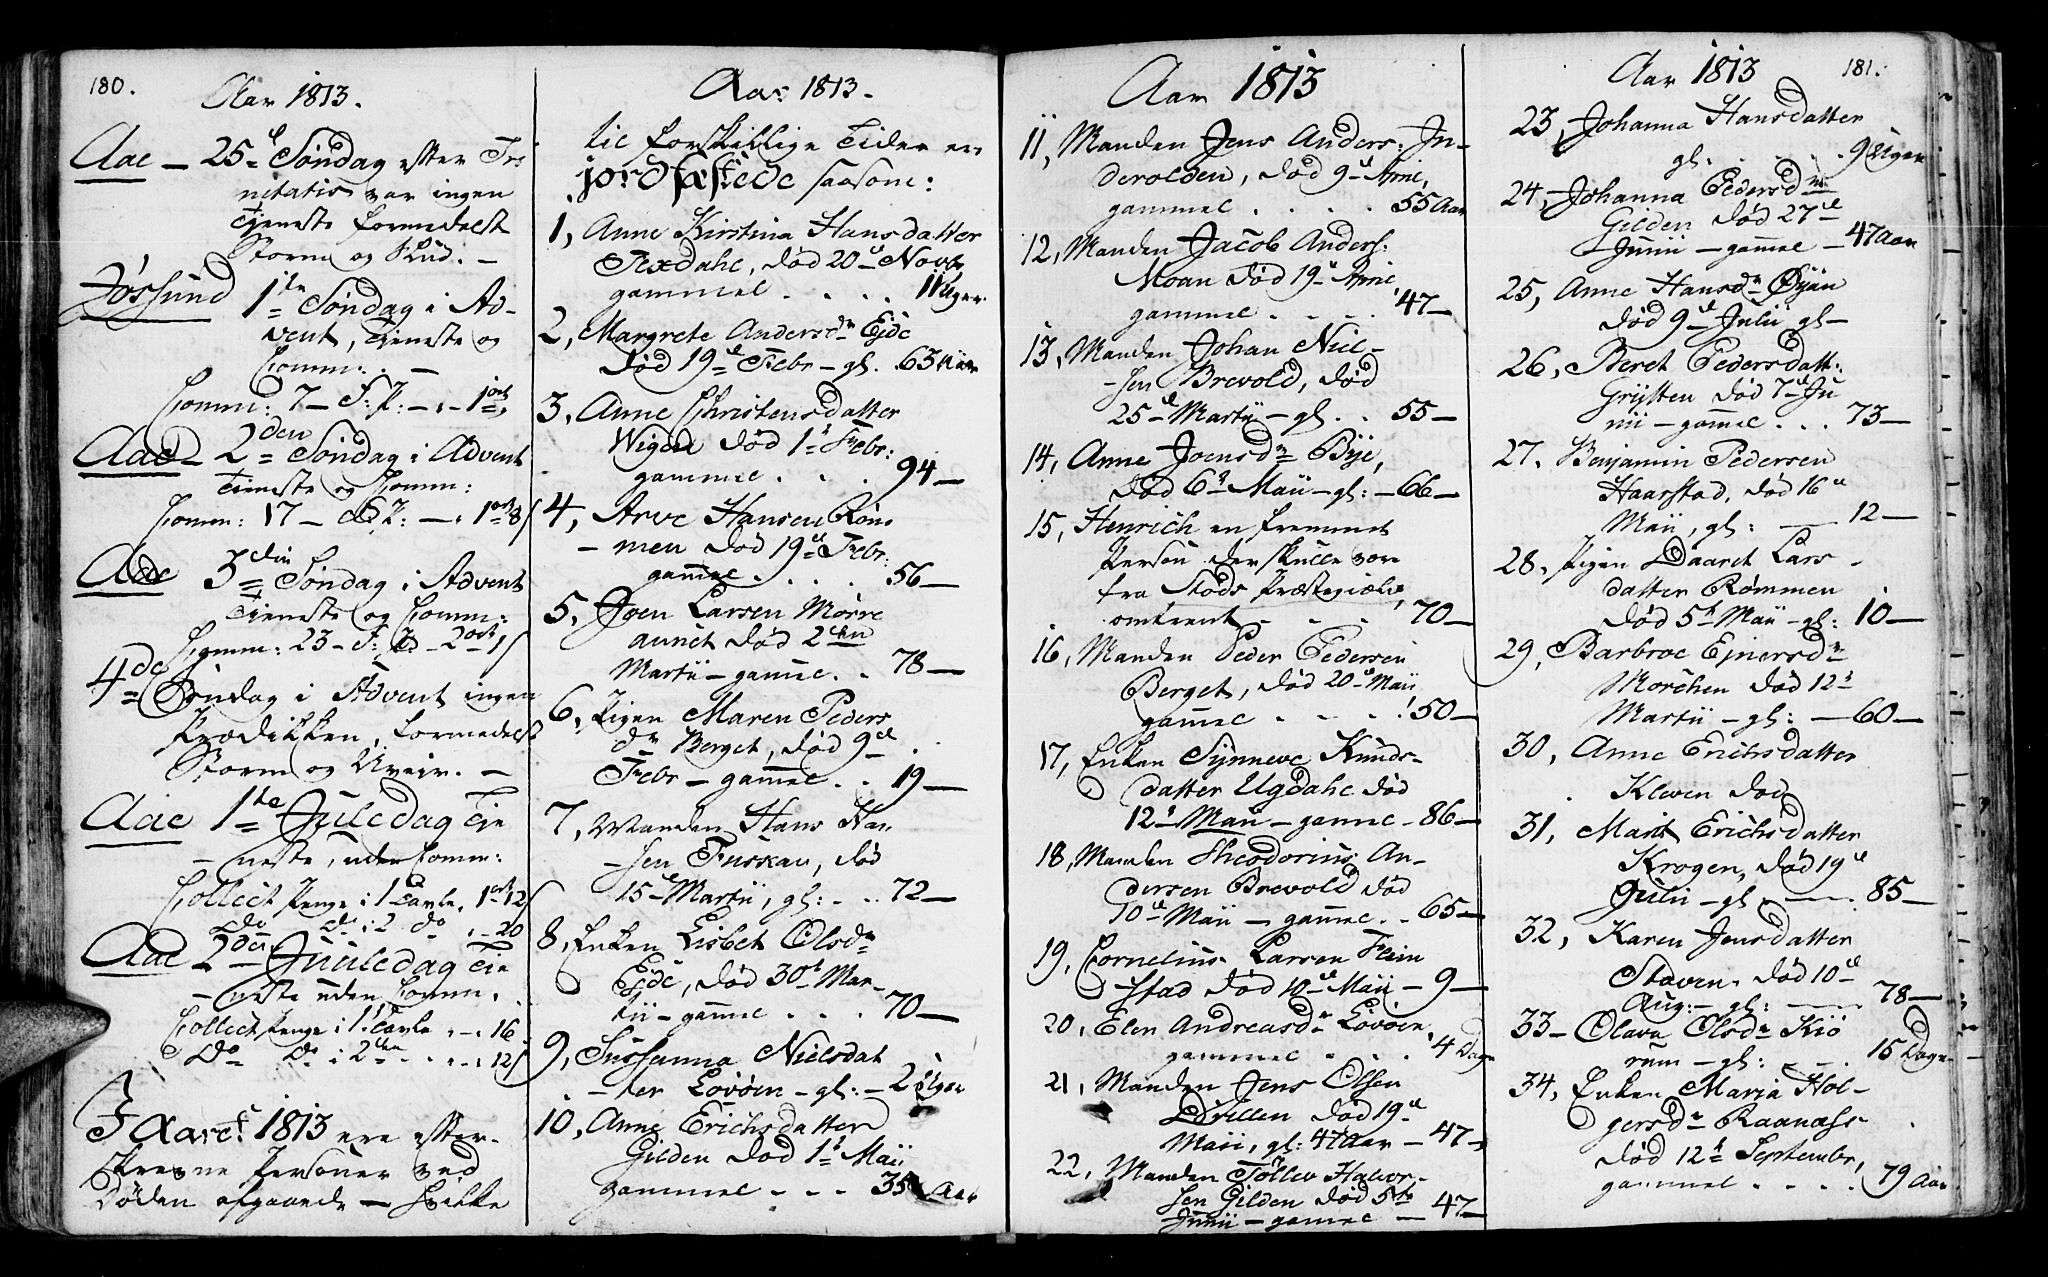 180.
Aar 1813.
Aae — 25de Søndag efter Tri
nitatis var ingen
Tjeneste formedelst
Storm og Slud. —
Jøssund 1ste Søndag i Ad-
vent, Tieneste og
Comm: —
Comm: 7 — S: P: — „ — 1ort
Aae — 2den Søndag i Advent
Tieneste og Comm:
Comm: 17 — S: P: — „ 1ort 8 s
Aae 3die Søndag i Advent
Tieneste og Comm:
Comm: 23 — S: P — 2ort 1 s
4de Søndag i Advent ingen
Prædikken, formedelst
Storm og Uveir. —
Aae 1ste Juledag Tie
neste, uden Comm:
Collect Penge i 1 Tavle, 1ort 12 s
Do Do i 2 do „ — 20
Aae 2den Juuledag Tie
neste uden Comm.
Collect Penge i 1 Tavle „ — „ 16
Do Do i 2den „ — „ 12 s
I Aaret 1813 ere efter-
skrevne Personer ved
Døden afgaaede — hvilke
Aar 1813.
til forskillige Tider ere
jordfæstede saasom:
1, Anne Kirstina Hansdatter
Texdahl, død 20de Novbr
gammel . . . . 11 Uger.
2, Margrete Andersdr Eide
død 19de Febr — gl. 63 Aar
3, Anne Christensdatter
Wigen død 1ste Febr:
gammel . . . 94 —
4, Arve Hansen Røm
men død 19de Febr:
gammel . . . . 56 —
5, Joen Larsen Morre
aunet død 2den
Martii — gamme. . 78 —
6, Pigen Maren Peders
dr Berget, død 9de
Febr — gammel . 19 —
7, Manden Hans Han
sen Fuskau, død
15de Martii, gl: . . 72 —
8, Enken Lisbet Olsdr
Eide, død 30te Mar-
tii — gammel . . . 70 —
9, Sussanna Nielsdat
ter Lovøen — gl: — 2 Uger
10, Anne Erichsdatter
Gilden død 1ste Maii
gammel . . . 35 Aar
Aar 1813
11, Manden Jens Anders: In-
derolden, død 9de April,
gammel . . . . 55 Aar
12, Manden Jacob Anders:
Moan død 19de April
gammel . . . . 47 —
13, Manden Johan Niel-
sen Brevold, død
25de Martii — gl . . 55 —
14, Anne Joensdr Bye,
død 6te Maii — gl: — 66 —
15, Henrich en fremmet
Person der skulle vere
fra Stods Præstegield,
omtrent . . . 70 —
16, Manden Peder Pedersen
Berget, død 20de Maii
gammel . . . . 50 —
17, Enken Synneve Knuds-
datter Ugdahl død
12te Maii — gammel — 86 —
18, Manden Theodorius An-
dersen Brevold død
10de Maii — gammel . . 65 —
19, Cornelius Larsen Fiin
stad død 10de Maii — 9 —
20, Elen Andreasdr Lovøen
gammel . . . . 4 Dage
21, Manden Jens Olsen
Drillen død 19de
Maii, gl: 47 Aar — 47 —
22, Manden Tollev Halvor-
sen Gilden død 5te
Junii — gammel — 47 —
Aar 1813
181.
23, Johanna Hansdatter
gl. . . . . 9 Uger
24, Johanna Pedersdr
Gilden død 27de
Junii — gammel — 47 Aar
25, Anne Hansdr Øyan
død 9de Julii gl —
26, Beret Pedersdatt:
Grytten død 7de Ju
nii — gammel . . . 73 —
27. Benjamin Pedersen
Haarstad, død 16de
Maii, gl: — 12 —
28, Pigen Daaret Lars
datter Rømmen
død 5te Maii — gl: 10 —
29, Barbroe Ejnersdr
Morchen død 12te
Martii — gl: — 60 —
30, Anne Erichsdatter
Kleven død
31, Marit Erichsdatter
Krogen, død 19de
Julii — gl — . 85 —
32, Karen Jensdatter
Staven. død 10de
Aug: — gl: — 78 —
33 — Olava Olsdr Kiø
rum — gl: — . 15 Dage
34, Enken Marja Hol-
gersdr Raanæss
død 12te Septembr,
gammel . . . . 79 Aar